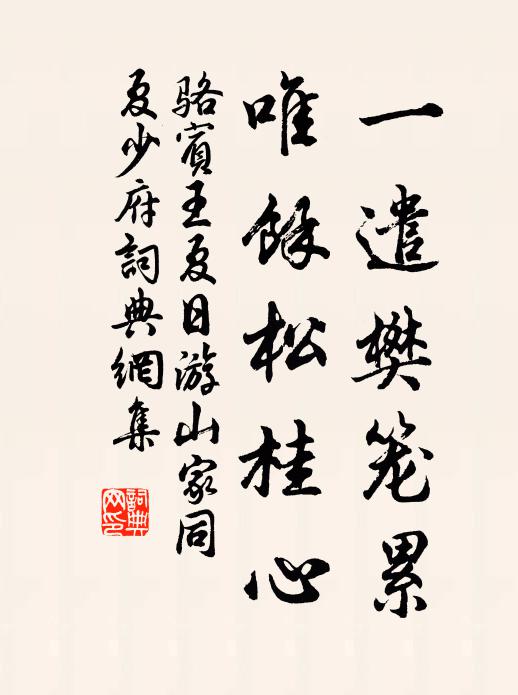 一遣樊笼累
唯餘松桂心
骆賓王夏日游山家同
夏少府詞典網集
詞典网印